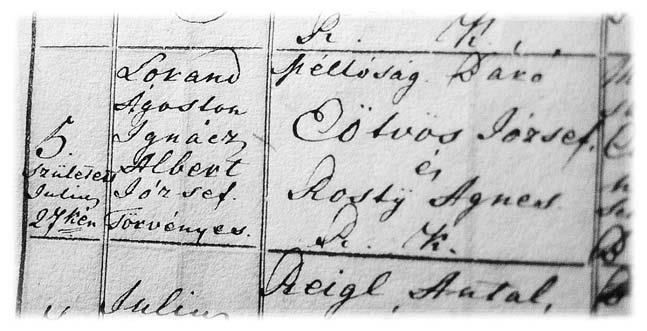 R. K.,
5.
született
Julius
27kén
Lorand
Ágoston
Ignácz
Albert
József.
Törvényes.
Méltóság. Báró
Eötvös József.
és
Rosty Agnes
R. K.
Reigl Antal,